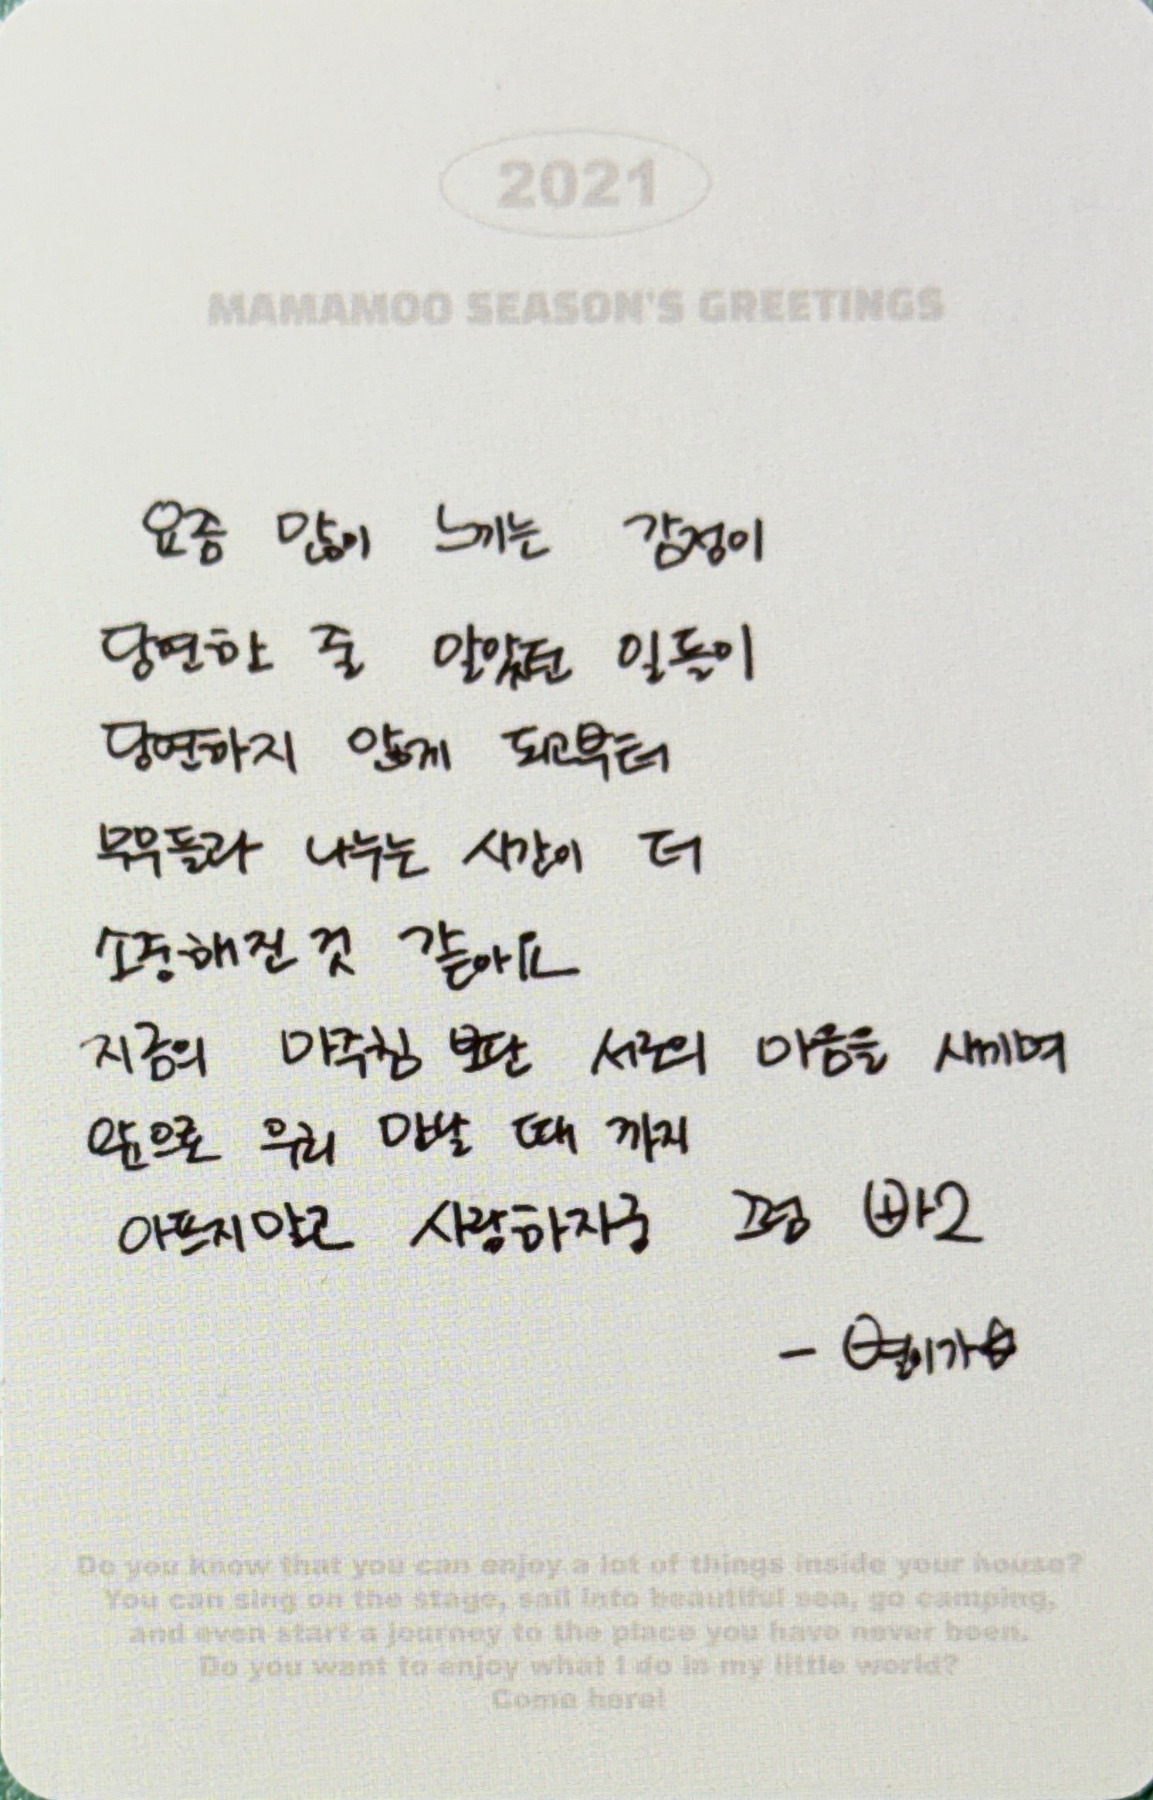 2021
MAMAMOO SEASON'S GREETINGS
요즘 많이 느끼는 감정이
당연한 줄 알았던 일들이
당연하지 않게 되고부터
무무들과 나누는 시간이 더
소중해진 것 같아요
지금의 마주침 보단 서로의 마음을 새기며
앞으로 우리 만날 때 까지
아프지말고 사랑하자궁
- 별이가☆
Do you know that you can enjoy a lot of things inside your house?
You can sing on the stage, sail into beautiful sea, go camping,
and even start a journey to the place you have never been.
Do you want to enjoy what I do in my little world?
Come here!